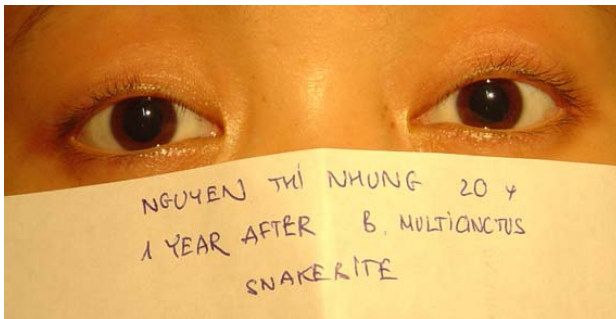 NGUYEN THỊ NHUNG 20 y
1 YEAR AFTER B. MULTICINCTUS
SNAKEBITE